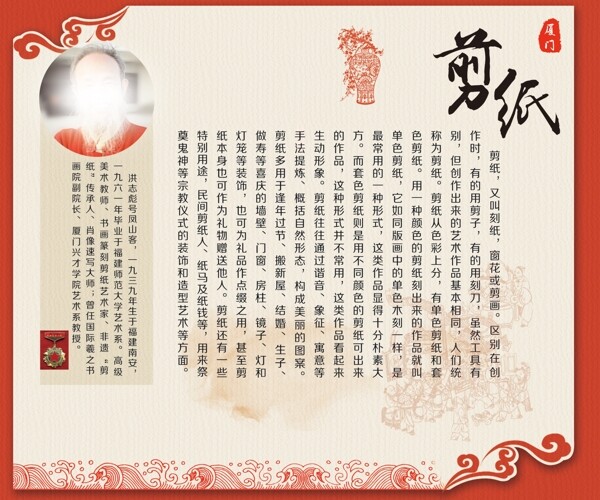 厦门
剪纸
剪纸，又叫刻纸，窗花或剪画。区别在创
作时，有的用剪子，有的用刻刀，虽然工具有
别，但创作出来的艺术作品基本相同，人们统
称为剪纸。剪纸从色彩上分，有单色剪纸和套
色剪纸。用一种颜色的剪纸刻出来的作品就叫
单色剪纸，它如同版画中的单色木刻一样，是
最常用的一种形式，这类作品显得十分朴素大
方。而套色剪纸则是用不同颜色的剪纸可出来
的作品，这种形式并不常用，这类作品看起来
生动形象。剪纸往往通过谐音、象征、寓意等
手法提炼、概括自然形态，构成美丽的图案。
剪纸多用于逢年过节、搬新屋、结婚、生子、
做寿等喜庆的墙壁、门窗、房柱、镜子、灯和
灯笼等装饰，也可为礼品作点缀之用，甚至剪
纸本身也可作为礼物赠送他人。剪纸还有一些
特别用途，民间剪纸人、纸马及纸钱等，用来祭
奠鬼神等宗教仪式的装饰和造型艺术等方面。
洪志彪号凤山客，一九三九年生于福建南安，
一九六一年毕业于福建师范大学艺术系。高级
美术教师、书画篆刻剪纸艺术家、非遗“剪
纸”传承人、肖像速写大师；曾任国际羲之书
画院副院长、厦门兴才学院艺术系教授。